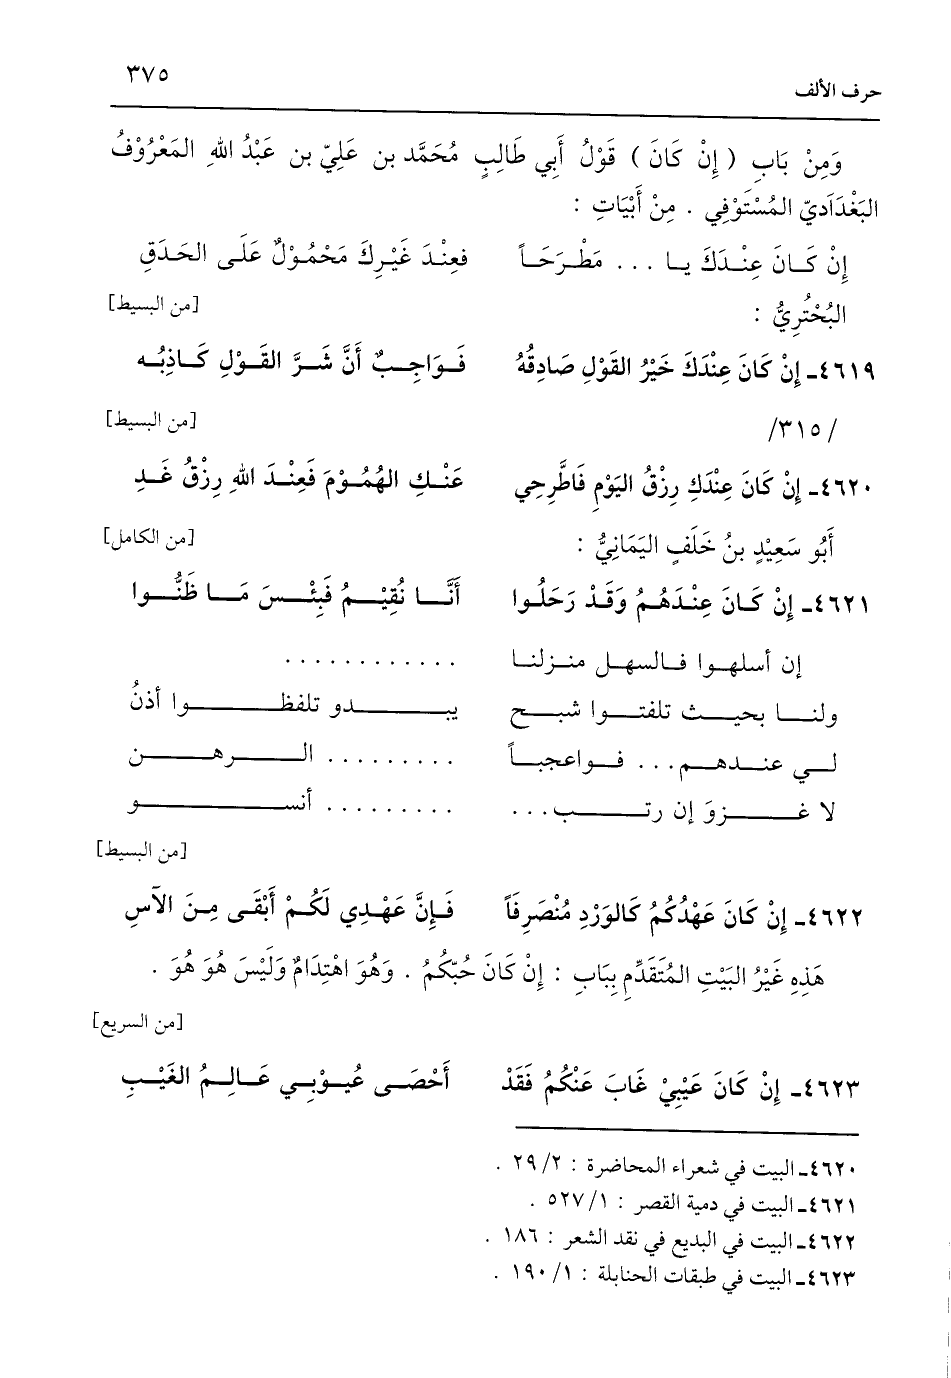 حرف الألف ٣٧٥
وَمِنْ بَابِ ( إِنْ كَانَ ) قَوْلُ أَبِي طَالِبٍ مُحَمَّد بن عَلِيّ بن عَبْدُ اللهِ المَعْرُوْفُ
البَغْدَادِيّ المُسْتَوْفِي . مِنْ أَبْيَاتٍ :
إِنْ كَـانَ عِنْـدَكَ يـا ... مَطْـرَحَـاً فعِنْـدَ غَيْـرِكَ مَحْمُـوْلٌ عَلَـى الحَـدَقِ
البُحْتُرِيُّ : [من البسيط]
٤٦١٩ـ إِنْ كَانَ عِنْدَكَ خَيْرُ القَوْلِ صَادِقُهُ فَـوَاجِـبٌ أَنَّ شَـرَّ القَـوْلِ كَـاذِبُـه
/٣١٥/ [من البسيط]
٤٦٢٠ـ إِنْ كَانَ عِنْدَكِ رِزْقُ اليَوْمِ فَاطَّرِحِي عَنْـكِ الهُمُـوْمَ فَعِنْـدَ اللهِ رِزْقُ غَـدِ
أَبُو سَعِيْدٍ بنُ خَلَفٍ اليَمَانِيُّ : [من الكامل]
٤٦٢١ـ إِنْ كَـانَ عِنْـدَهُـمُ وَقَـدْ رَحَلُـوا أَنَّـا نُقِيْـمُ فَبِئْـسَ مَـا ظَنُّـوا
إن أسلهـوا فـالسهـل منـزلنـا ............
ولنـا بحيـث تلفتـوا شبـح يبـدو تلفظـوا أذنُ
لـي عنـدهـم... فـواعجبـاً ......... الـرهـن
لا غـزوَ إن رتـب... ......... أنسـو
[من البسيط]
٤٦٢٢ـ إِنْ كَانَ عَهْدُكُمُ كَالوَرْدِ مُنْصَرِفَاً فَـإِنَّ عَهْـدِي لَكُـمْ أَبْقَـى مِـنَ الآسِ
هَذِهِ غَيْرُ البَيْتِ المُتَقَدِّمِ بِبَابِ : إِنْ كَانَ حُبّكُمُ . وَهُوَ اهْتِدَامٌ وَلَيْسَ هُوَ هُوَ .
[من السريع]
٤٦٢٣ـ إِنْ كَانَ عَيْبِيْ غَابَ عَنْكُمُ فَقَدْ أَحْصَـى عُيـوْبـي عَـالِـمُ الغَيْـبِ
٤٦٢٠ـ البيت في شعراء المحاضرة : ٢/ ٢٩ .
٤٦٢١ـ البيت في دمية القصر : ١/ ٥٢٧ .
٤٦٢٢ـ البيت في البديع في نقد الشعر : ١٨٦ .
٤٦٢٣ـ البيت في طبقات الحنابلة : ١/ ١٩٠ .